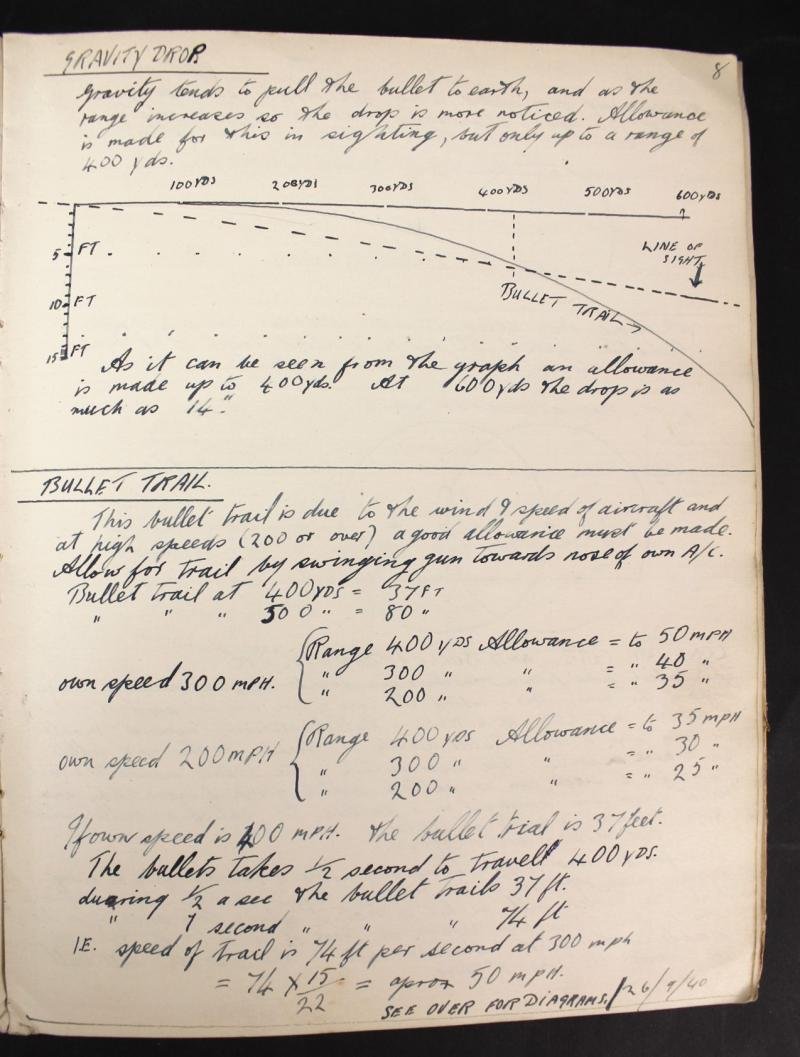 8
GRAVITY DROP.
Gravity tends to pull the bullet to earth, and as the
range increases so the drop is more noticed. Allowance
is made for this in sighting, but only up to a range of
400 yds.
100YDS 200YDS 300YDS 400YDS 500YDS 600YDS
5 FT
10 FT
15 FT
LINE OF
SIGHT
BULLET TRAIL
As it can be seen from the graph an allowance
is made up to 400yds. At 600yds the drop is as
much as 14".
BULLET TRAIL.
This bullet trail is due to the wind & speed of aircraft and
at high speeds (200 or over) a good allowance must be made.
Allow for trail by swinging gun towards nose of own A/C.
Bullet trail at 400YDS = 37FT
" " " 500 " = 80 "
own speed 300 MPH.
Range 400 YDS Allowance = to 50 MPH
" 300 " " = " 40 "
" 200 " " = " 35 "
own speed 200MPH
Range 400 YDS Allowance = to 35 MPH
" 300 " " = " 30 "
" 200 " " = " 25 "
If own speed is 400 MPH. the bullet trial is 37 feet.
The bullets takes 1/2 second to travell 400 YDS.
during 1/2 a sec the bullet trails 37 ft.
" 1 second " " " 74 ft
I.E. speed of trail is 74 ft per second at 300 mph
= 74 × 15/22 = aprox 50 MPH.
SEE OVER FOR DIAGRAMS. 26/9/40